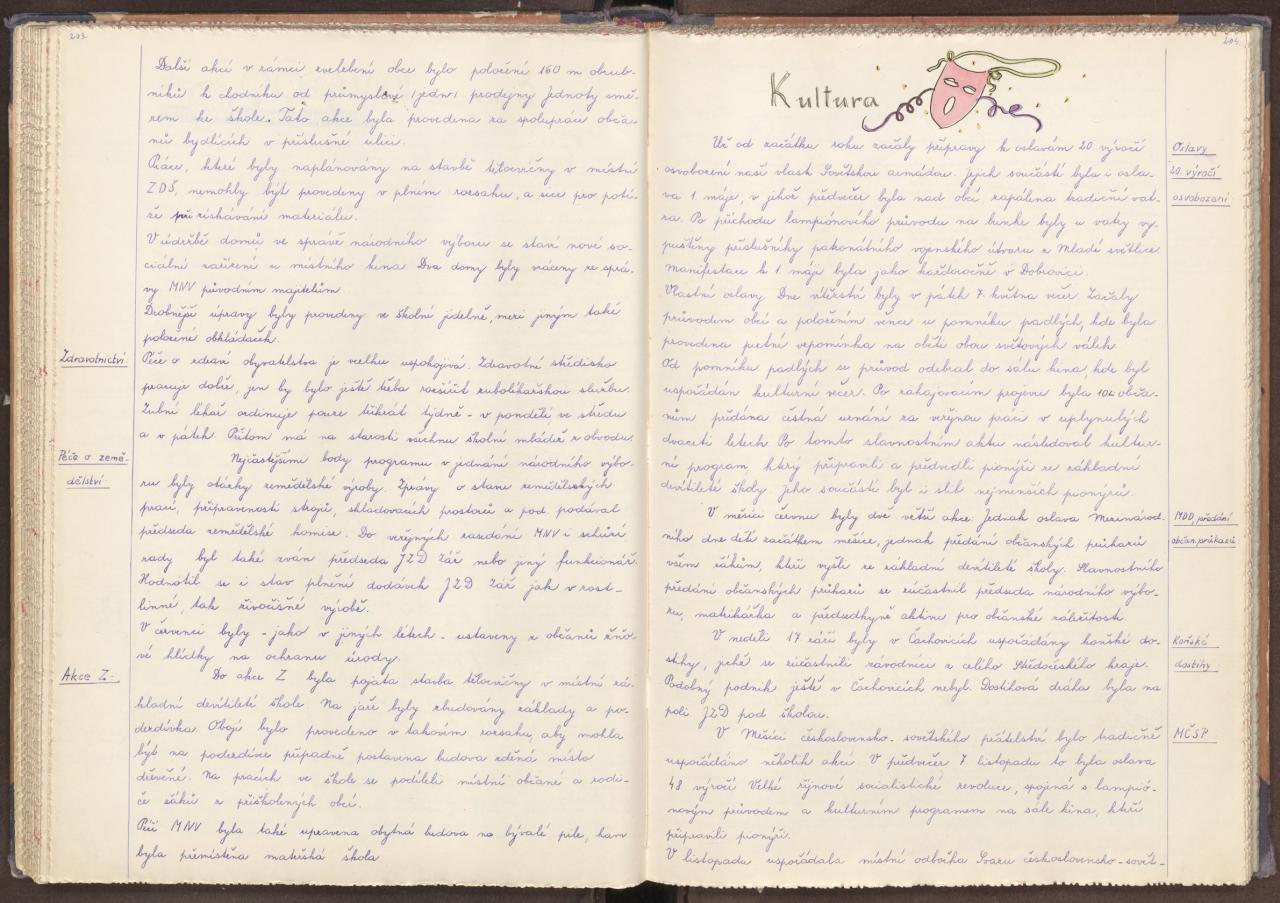 203.
Další akcí v rámci zvelebení obce bylo položení 160 m obrub-
níků k chodníku od průmyslové /jedn/ prodejny Jednoty smě-
rem ke škole. Tato akce byla provedena za spolupráce obča-
nů bydlících v příslušné ulici.
Práce, které byly naplánovány na stavbě tělocvičny v místní
ZDŠ, nemohly být provedeny v plném rozsahu, a sice pro potí-
že při získávání materiálu.
V údržbě domů ve správě národního výboru se staví nové so-
ciální zařízení u místního kina. Dva domy byly vráceny ze sprá-
vy MNV původním majitelům.
Drobnější úpravy byly provedeny ve školní jídelně, mezi jiným také
položení obkládaček.
Zdravotnictví:
Péče o zdraví obyvatelstva je vcelku uspokojivá. Zdravotní středisko
pracuje dobře, jen by bylo ještě třeba rozšířit zubolékařskou službu.
Zubní lékař ordinuje pouze třikrát týdně - v pondělí, ve středu
a v pátek. Přitom má na starosti všechnu školní mládež z obvodu.
Péče o země-
dělství:
Nejčastějšími body programu v jednání národního výbo-
ru byly otázky zemědělské výroby. Zprávy o stavu zemědělských
prací, připravenosti strojů, skladovacích prostorů a pod. podával
předseda zemědělské komise. Do veřejných zasedání MNV i schůzí
rady byl také zván předseda JZD Zář nebo jiný funkcionář.
Hodnotil se i stav plnění dodávek JZD Zář jak v rost-
linné, tak živočišné výrobě.
V červenci byly - jako v jiných létech - ustaveny z občanů žňo-
vé hlídky na ochranu úrody.
Akce Z:
Do akce Z byla pojata stavba tělocvičny v místní zá-
kladní devítileté škole. Na jaře byly zbudovány základy a po-
dezdívka. Obojí bylo provedeno v takovém rozsahu, aby mohla
být na podezdívce případně postavena budova zděná místo
dřevěné. Na pracích ve škole se podíleli místní občané a rodi-
če žáků z přiškolených obcí.
Péčí MNV byla také upravena obytná budova na bývalé pile, kam
byla přemístěna mateřská škola.
204.
Kultura
Oslavy
20. výročí
osvobození:
Už od začátku roku začaly přípravy k oslavám 20. výročí
osvobození naší vlasti Sovětskou armádou. Jejich součástí byla i osla-
va 1. máje, v jehož předvečer byla nad obcí zapálena tradiční vat-
ra. Po příchodu lampiónového průvodu na bunke byly u vatry vy-
puštěny příslušníky pakonátního vojenského útvaru z Mladé světlice.
Manifestace k 1. máji byla jako každoročně v Dobrovici.
Vlastní oslavy Dne vítězství byly v pátek 7. května večer. Začaly
průvodem obcí a položením věnce u pomníku padlých, kde byla
provedena pietní vzpomínka na oběti obou světových válek.
Od pomníku padlých se průvod odebral do sálu kina, kde byl
uspořádán kulturní večer. Po zahajovacím projevu byla 104 obča-
nům předána čestná uznání za veřejnou práci v uplynulých
dvaceti letech. Po tomto slavnostním aktu následoval kultur-
ní program, který připravili a předvedli pionýři ze základní
devítileté školy. Jeho součástí byl i slib nejmenších pionýrů.
MDD, předání
občan. průkazů
V měsíci červnu byly dvě větší akce: Jednak oslava Mezinárod-
ního dne dětí začátkem měsíce, jednak předání občanských průkazů
všem žákům, kteří vyšli ze základní devítileté školy. Slavnostního
předání občanských průkazů se zúčastnil předseda národního výbo-
ru, matrikářka a předsedkyně aktivu pro občanské záležitosti.
Koňské
dostihy:
V neděli 17. září byly v Čachovicích uspořádány koňské do-
stihy, jichž se zúčastnili závodníci z celého Středočeského kraje.
Podobný podnik ještě v Čachovicích nebyl. Dostihová dráha byla na
poli JZD pod školou.
MČSP
V Měsíci československo-sovětského přátelství bylo tradičně
uspořádáno několik akcí. V předvečer 7. listopadu to byla oslava
48. výročí Velké říjnové socialistické revoluce, spojená s lampió-
novým průvodem a kulturním programem na sále kina, kteří
připravili pionýři.
V listopadu uspořádala místní odbočka Svazu československo-sovět-